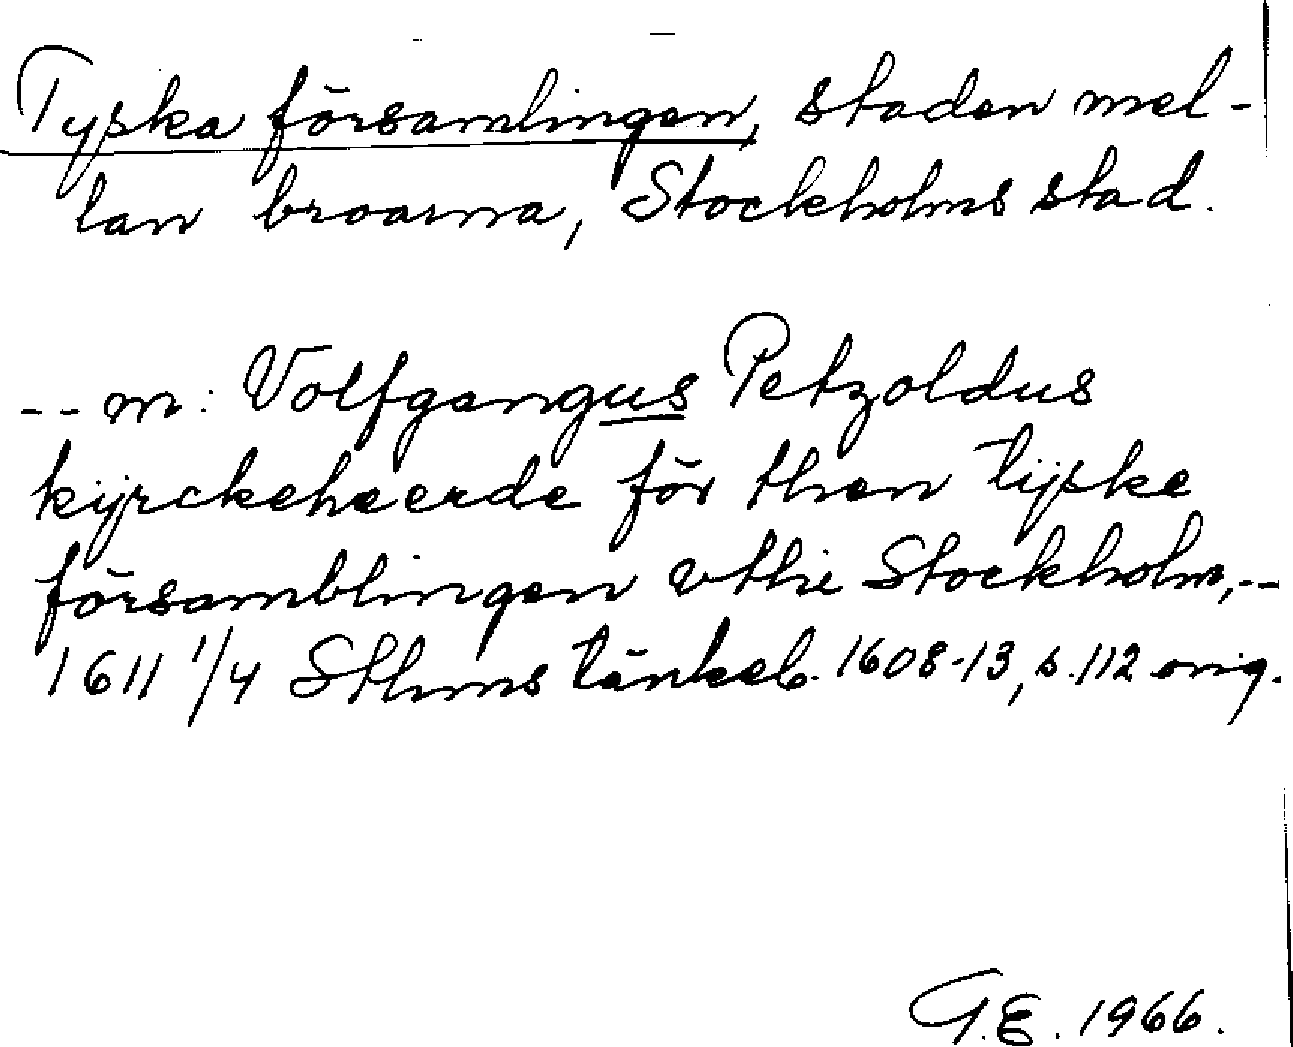 Tyska församlingen, staden mel-
lan broarna, Stockholms stad.
-- m: Volfgangus Petzoldus
kijrckeheerde för then tijske
församblingen vthi Stockholm, --
1611 1/4 Sthms tänkeb. 1608-13, s. 112 orig.
G.E. 1966.